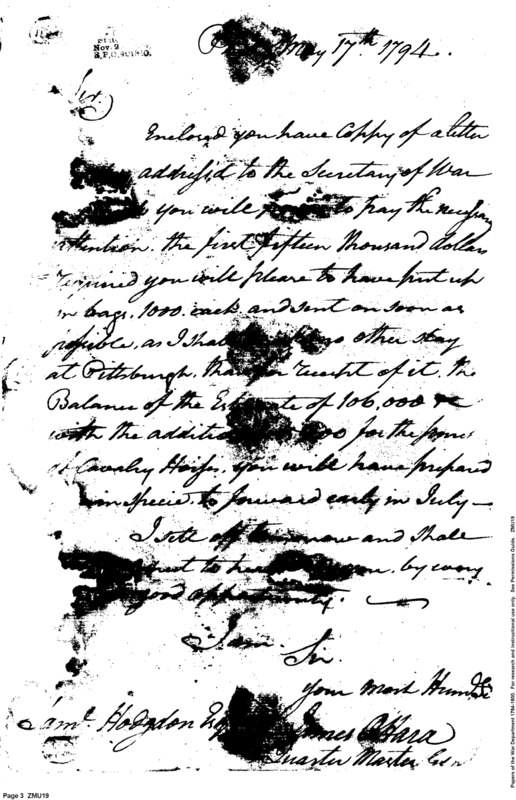 Nov. 9
May 17th. 1794.
Sir,
Enclosed you have Coppy of a letter
address'd to the Secretary of War
you will to pay the necessary
attention. the first fifteen thousand dollars
required you will please to have put up
in bags. 1000 each and sent on soon as
possible, as I shall no other stay
at Pittsburgh. than for receipt of it. the
Balance of the Estimate of 106,000
with the addition for the
of Cavalry Horses, you will have prepared
in specie, to forward early in July —
I sett off tomorrow and shall
to by every
good opportunity. —
I am
Sir.
your most Humble
Saml. Hodgdon Esqr James OHara
Quarter Master Genl
Page 3 ZMU19
Papers of the War Department 1784-1800. For research and instructional use only. See Permissions Guide. ZMU19